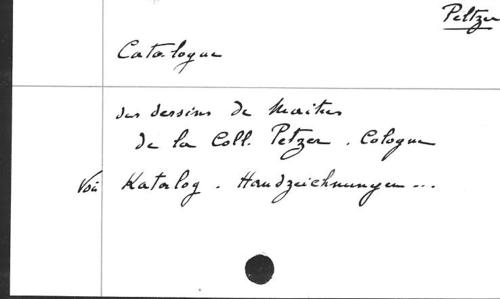 Peltzer
Catalogue
des dessins de Maitres
de la Coll. Petzer . Cologne
Voir Katalog . Handzeichnungen ...